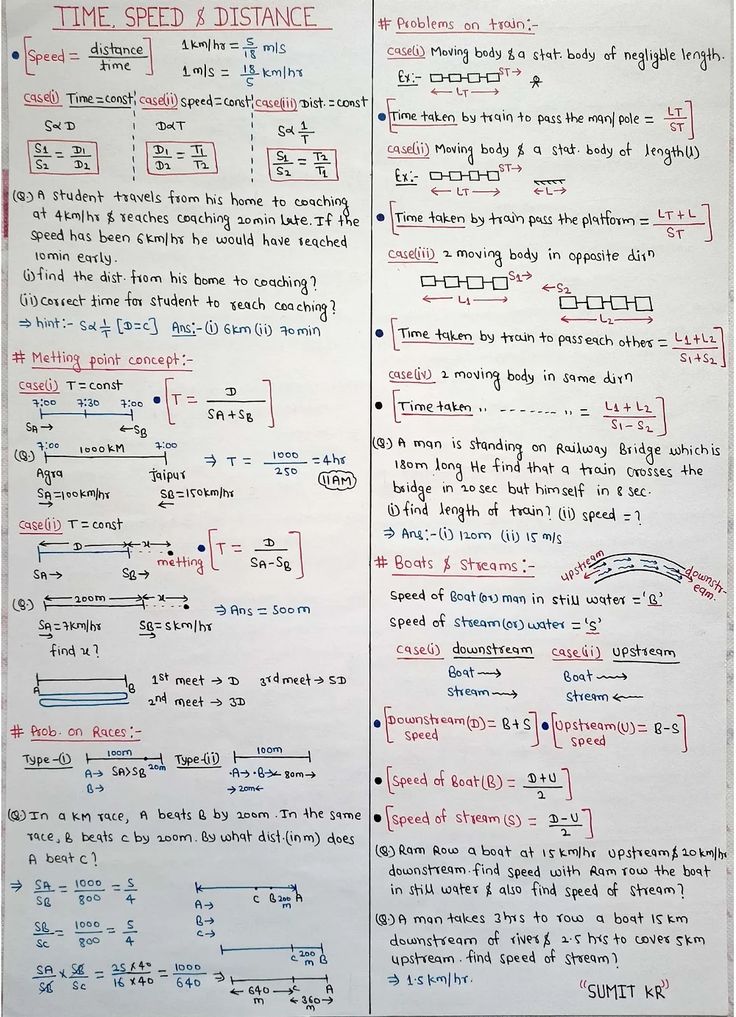 TIME, SPEED & DISTANCE
[Speed = distance/time]
1 km/hr = 5/18 m/s
1 m/s = 18/5 km/hr
case(i) Time = const
S∝D
S1/S2 = D1/D2
case(ii) speed = const
D∝T
D1/D2 = T1/T2
case(iii) Dist. = const
S∝1/T
S1/S2 = T2/T1
(Q:) A student travels from his home to coaching
at 4km/hr & reaches coaching 20min late. If the
speed has been 6km/hr he would have reached
10min early.
(i) find the dist. from his home to coaching?
(ii) correct time for student to reach coaching?
⇒ hint:- S∝1/T [D=C] Ans:- (i) 6km (ii) 70min
# Metting point concept:-
case(i) T = const
7:00 7:30 7:00
SA→ ←SB
[T = D/(SA+SB)]
(Q:) 7:00 1000KM 7:00
Agra Jaipur
SA=100km/hr SB=150km/hr
⇒ T = 1000/250 = 4hr
11AM
case(ii) T = const
D x
SA→ SB→ metting
[T = D/(SA-SB)]
(Q:) 200m x
SA=7km/hr SB=5km/hr
find x?
⇒ Ans = 500m
A B
1st meet → D 3rd meet → 5D
2nd meet → 3D
# Prob. on Races:-
Type-(i) 100m
A→ SA>SB 20m
B→
Type-(ii) 100m
A→ B→ ← 80m →
→20m←
(Q:) In a KM race, A beats B by 200m. In the same
race, B beats c by 200m. By what dist.(in m) does
A beat c?
⇒ SA/SB = 1000/800 = 5/4
A→ C B 200m A
B→
C→
SB/SC = 1000/800 = 5/4
C 200m B
SA/SB × SB/SC = 25×40/16×40 = 1000/640 ⇒
← 640m → C A
←360m→
# Problems on train:-
case(i) Moving body & a stat. body of neglighble length.
Ex:- ST→
← LT →
[Time taken by train to pass the man/pole = LT/ST]
case(ii) Moving body & a stat. body of length(l)
Ex:- ST→
← LT → ←L→
[Time taken by train pass the platform = (LT+L)/ST]
case(iii) 2 moving body in opposite dirn
S1→ ←S2
← L1 → ← L2 →
[Time taken by train to pass each other = (L1+L2)/(S1+S2)]
case(iv) 2 moving body in same dirn
[Time taken ,, ------- ,, = (L1+L2)/(S1-S2)]
(Q:) A man is standing on Railway Bridge which is
180m long He find that a train crosses the
bridge in 20sec but himself in 8 sec.
(i) find length of train? (ii) speed = ?
⇒ Ans:- (i) 120m (ii) 15 m/s
# Boats & Streams:-
upstream downstream.
Speed of Boat(or) man in still water = 'B'
Speed of stream(or) water = 'S'
case(i) downstream case(ii) upstream
Boat → Boat →
Stream → Stream ←
[Downstream(D) speed = B+S] [Upstream(U) speed = B-S]
[Speed of Boat(B) = (D+U)/2]
[Speed of stream(S) = (D-U)/2]
(Q:) Ram Row a boat at 15 km/hr upstream & 20km/hr
downstream. find speed with Ram row the boat
in still water & also find speed of stream?
(Q:) A man takes 3hrs to row a boat 15 km
downstream of river & 2.5 hrs to cover 5km
upstream. find speed of stream?
⇒ 1.5 km/hr.
"SUMIT KR"